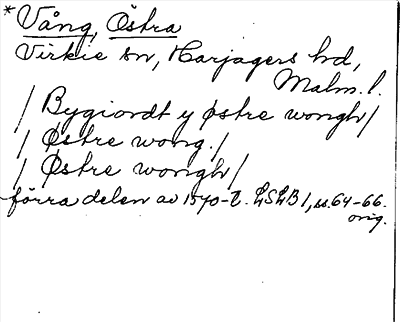 *Vång, Östra
Virkie sn, Harjagers hd,
Malm. l.
/ Bygiordt y østre wongh/
/ Østre wong./
/ Østre wongh/
förra delen av 1570-t. LSLB 1, ss. 64-66.
orig.